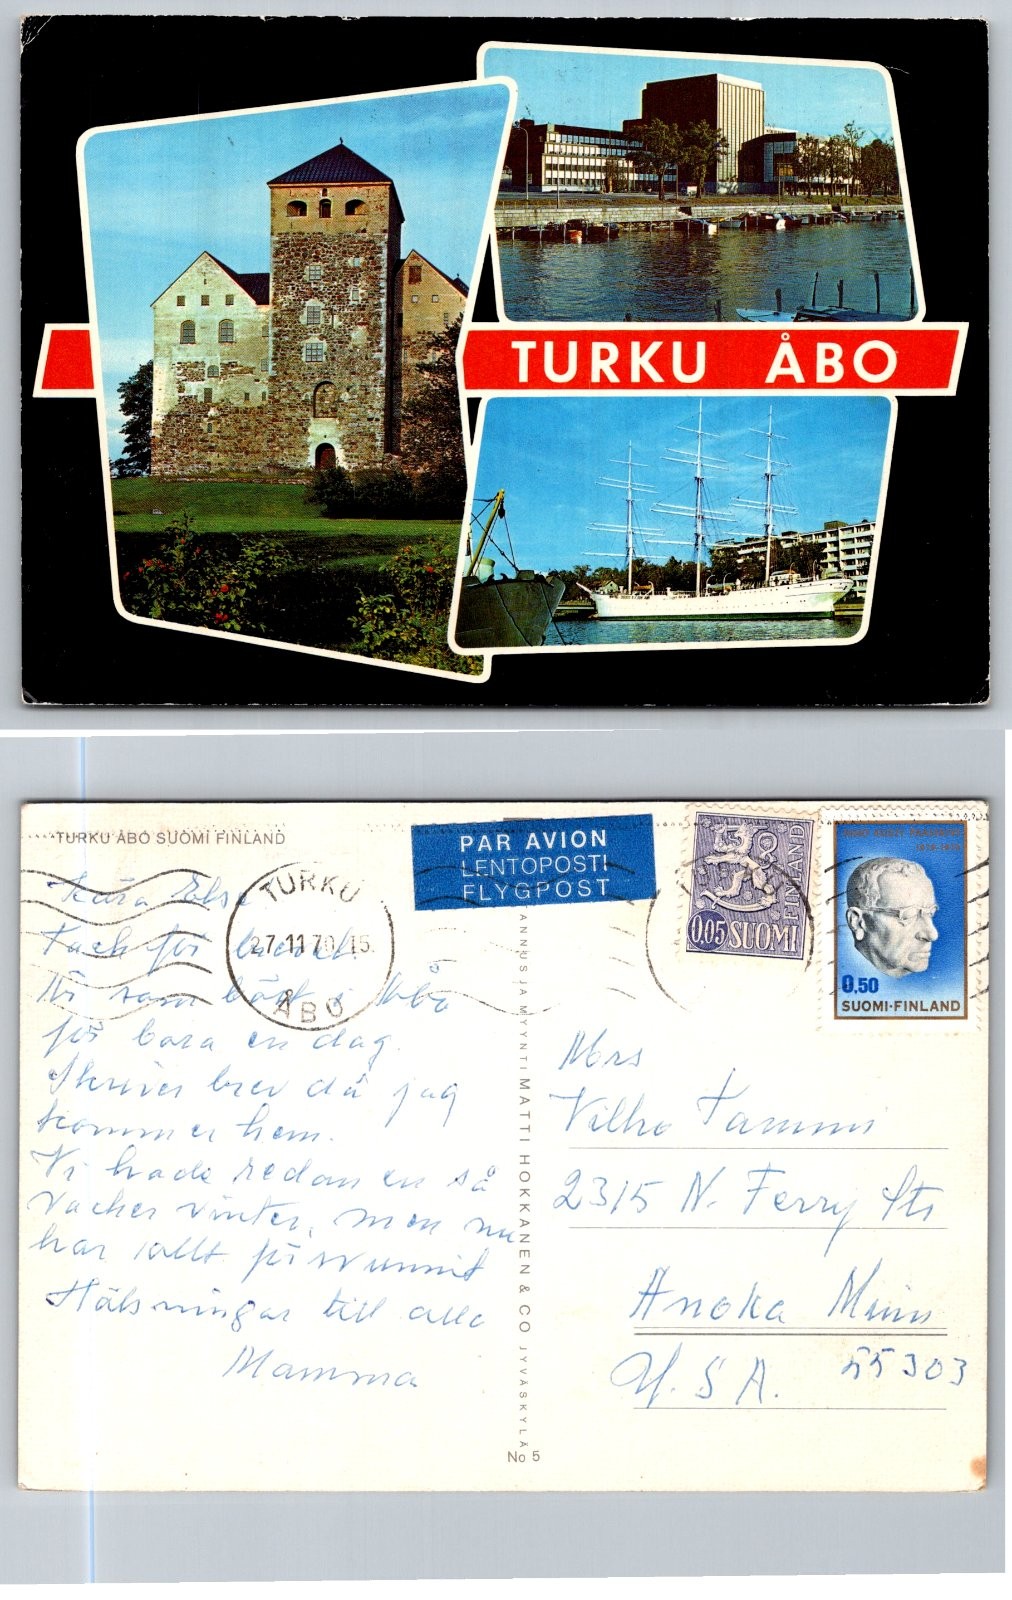 TURKU ÅBO
TURKU ÅBO SUOMI FINLAND
PAR AVION
LENTOPOSTI
FLYGPOST
TURKU
27.11.70.15.
ÅBO
0.05 SUOMI
FINLAND
0,50
SUOMI-FINLAND
Kära Else
Tack för brevet.
Är som bäst i Åbo
för bara en dag.
Skriver brev då jag
kommer hem.
Vi hade redan en så
vacker vinter, men nu
har allt försvunnit
Hälsningar till alla
Mamma
Mrs
Vilho Tammi
2315 N. Ferry Str
Anoka Minn
U.S.A. 55303
MYYNTI MATTI HOKKANEN & CO JYVÄSKYLÄ
No 5